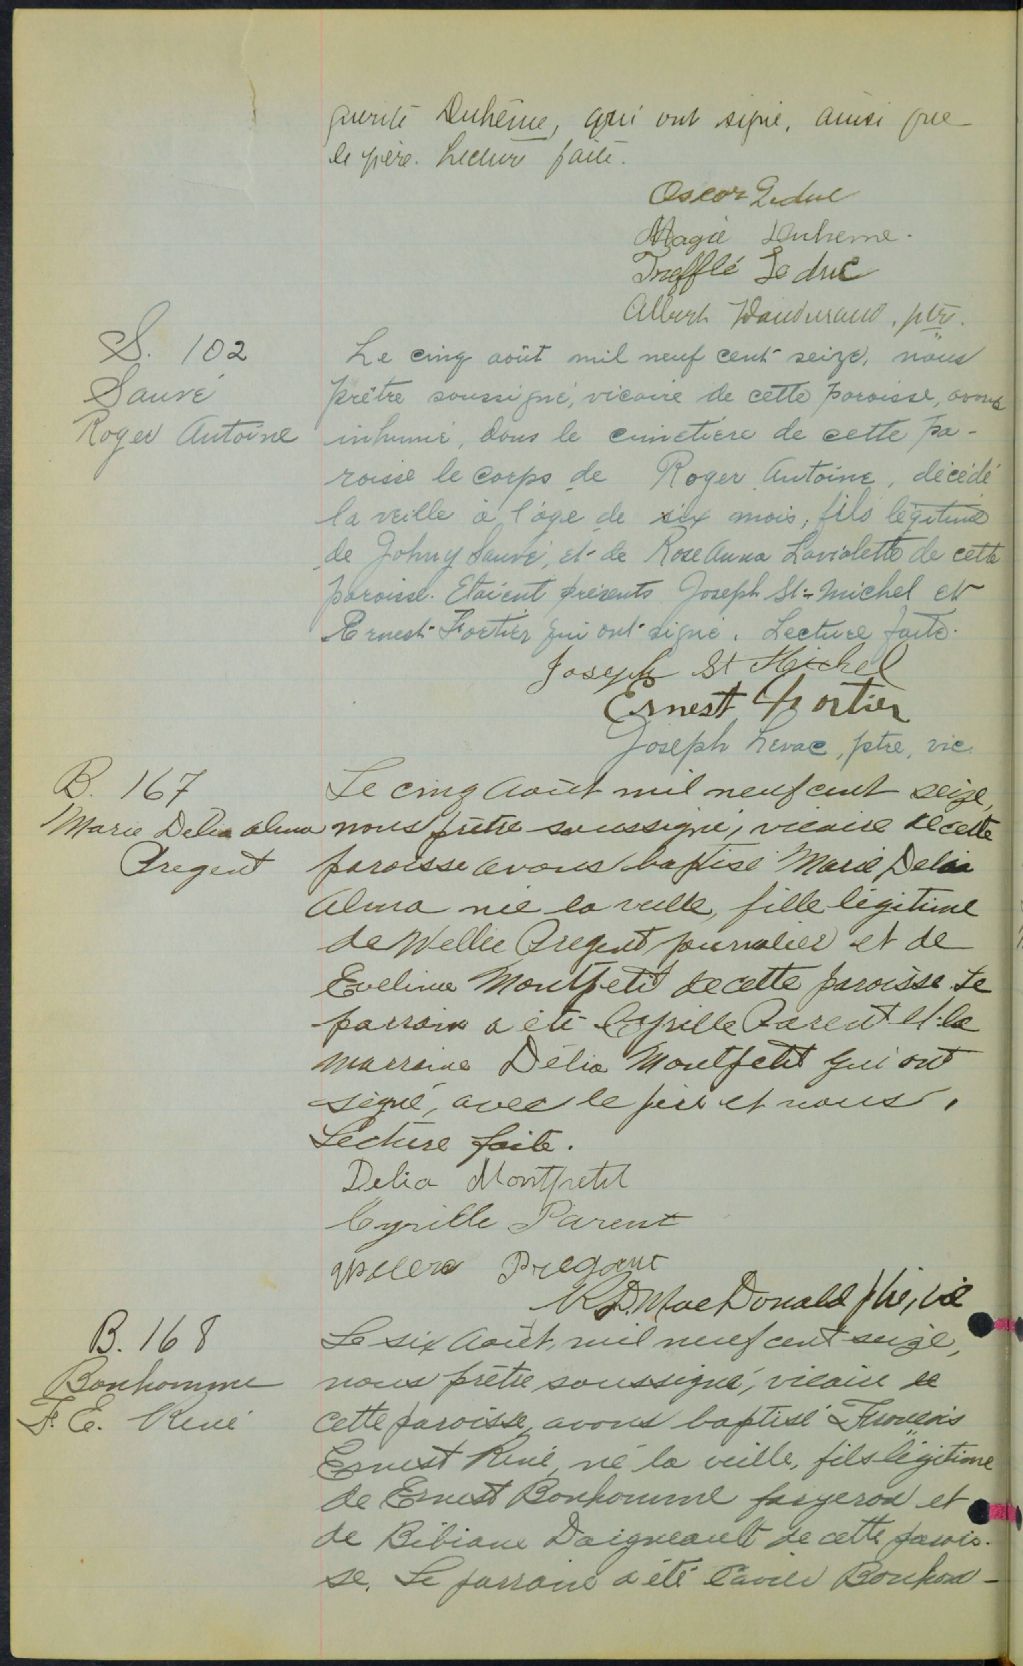 guerite Duhême, qui ont signé, ainsi que
le père. Lecture faite.
Oscar Leduc
Magie Duheme.
Trefflé Leduc
Albert Dandurand, ptr.
S. 102
Sauvé
Roger Antoine
Le cinq août mil neuf cent seize, nous
prêtre soussigné, vicaire de cette paroisse, avons
inhumé, dans le cimetière de cette pa-
roisse le corps de Roger Antoine, décédé
la veille à l'âge de six mois, fils légitime
de Johny Sauvé, et de Rose Anna Laviolette de cette
paroisse. Etaient présents Joseph St-Michel et
Ernest Fortier qui ont signé. Lecture faite.
Joseph St Michel
Ernest Fortier
Joseph Levac, ptre, vic.
B. 167
Marie Delia alma
Pregent
Le cinq Août mil neuf cent seize,
nous prêtre soussigné, vicaire de cette
paroisse avons baptisé Marie Delia
Alma née la veille, fille légitime
de Wellie Pregent journalier et de
Eveline Montpetit de cette paroisse. Le
parrain a été Cyrille Parent et la
marraine Délia Montpetit qui ont
signé, avec le père et nous.
Lecture faite.
Delia Montpetit
Cyrille Parent
Pregant
R D. MacDonald ptre, vic
B. 168
Bonhomme
F. E. René
Le six Août, mil neuf cent seize,
nous prêtre soussigné, vicaire de
cette paroisse, avons baptisé François
Ernest René, né la veille, fils légitime
de Ernest Bonhomme forgeron et
de Bibiane Daigneault de cette parois-
se. Le parrain a été Bonhom-